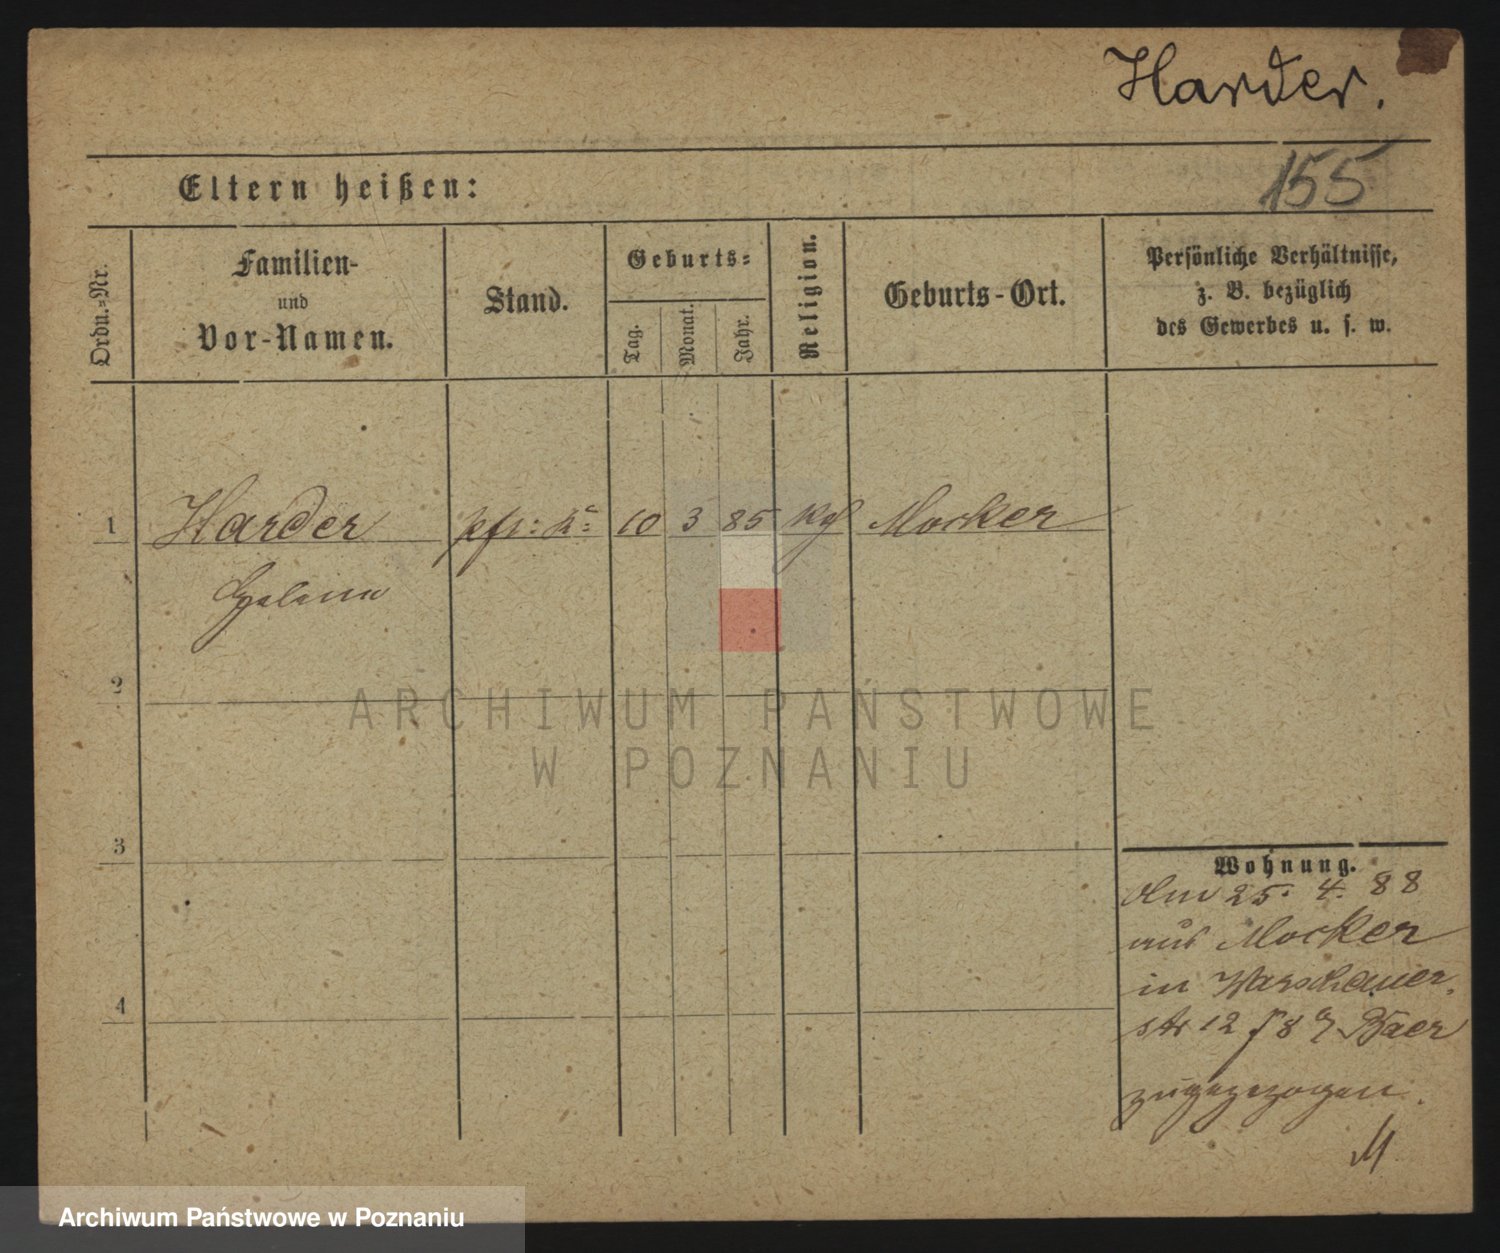 Harder.
155
Eltern heißen:
Ordn.-Nr.
Familien-
und
Vor-Namen.
Stand.
Geburts-
Tag.
Monat.
Jahr.
Religion.
Geburts-Ort.
Persönliche Verhältnisse,
z. B. bezüglich
des Gewerbes u. s. w.
1 Harder 10 3 85 Mocker
2
3
4
Wohnung.
Am 25. 4. 88
aus Mocker
in Warschauer
str 12 Baer
zugezogen.
M
ARCHIWUM PAŃSTWOWE
W POZNANIU
Archiwum Państwowe w Poznaniu